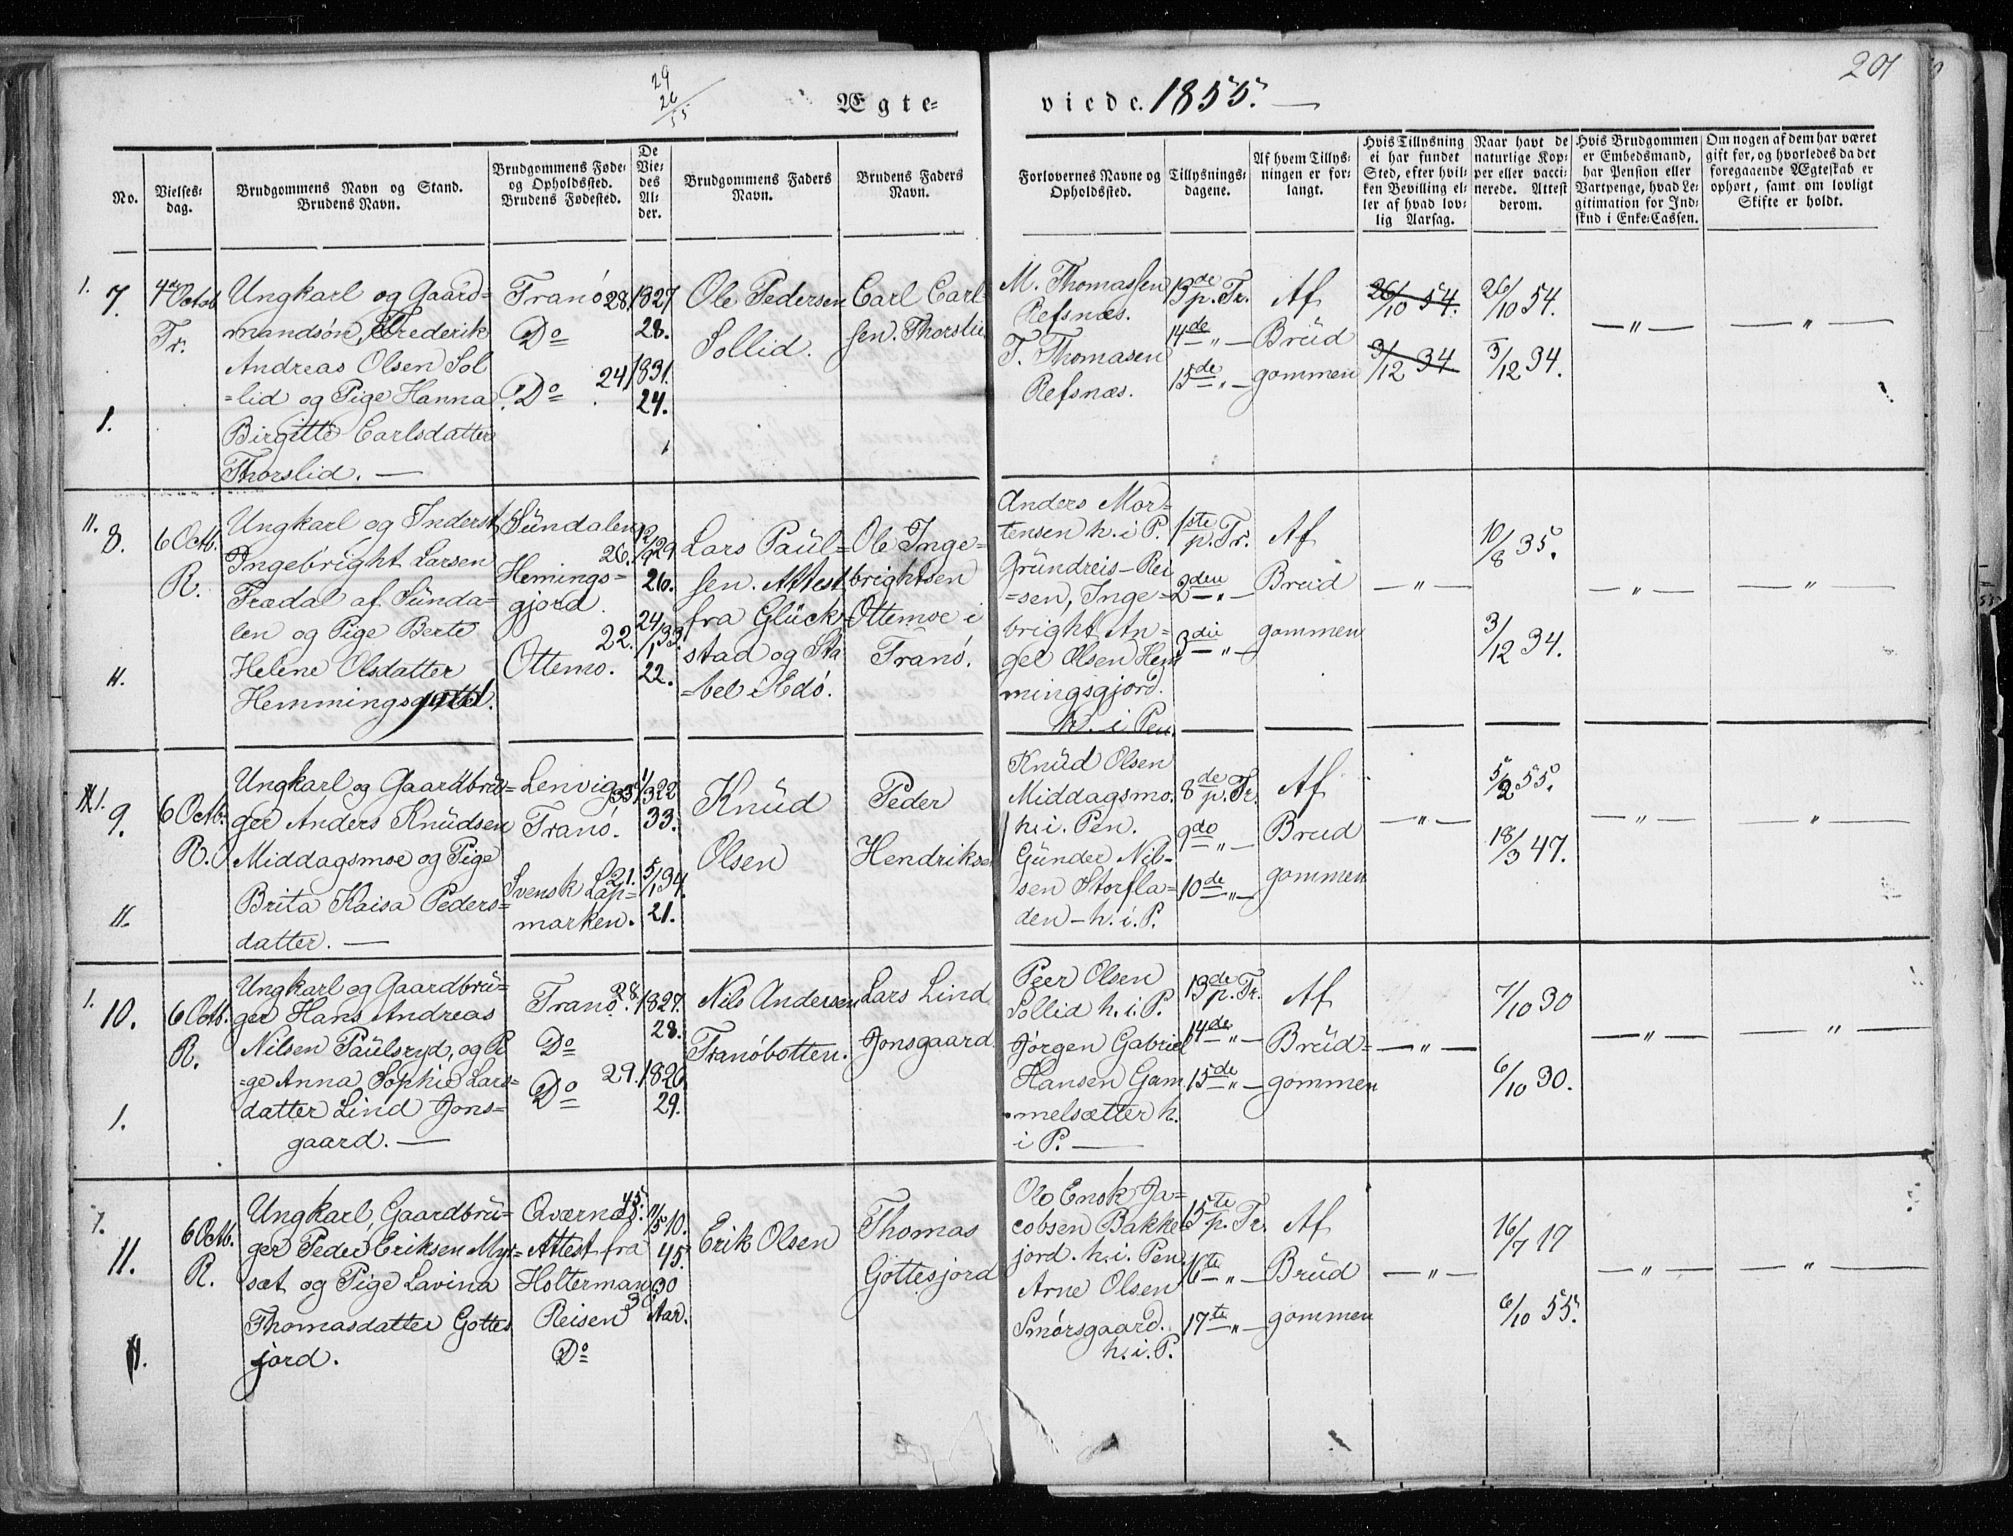 29
26
55
Ægte-
viede. 1855. —
201
No.
Vielses-
dag.
Brudgommens Navn og Stand.
Brudens Navn.
Brudgommens Føde-
og Opholdssted.
Brudens Fødested.
De
Vie-
des
Al-
der.
Brudgommens Faders
Navn.
Brudens Faders
Navn.
Forlovernes Navne og
Opholdssted.
Tillysnings-
dagene.
Af hvem Tillys-
ningen er for-
langt.
Hvis Tillysning
ei har fundet
Sted, efter hvil-
ken Bevilling el-
ler af hvad lov-
lig Aarsag.
Naar havt de
naturlige Kop-
per eller vacci-
nerede. Attest
derom.
Hvis Brudgommen
er Embedsmand,
har Pension eller
Vartpenge, hvad Le-
gitimation for Ind-
skud i Enke-Cassen.
Om nogen af dem har været
gift for, og hvorledes da det
foregaaende Ægteskab er
ophørt, samt om lovligt
Skifte er holdt.
1.
7.
1.
4de Octob
Tr.
Ungkarl og Gaard-
mandsøn, Frederik
Andreas Olsen Sol
=lid og Pige Hanna
Birgitte Carlsdatter
Thorslid. —
Tranö 28.
Do
Do 24
1827
28.
1831.
24.
Ole Pedersen
Sollid.
Carl Carl-
sen. Thorslid
M. Thomassen
Refsnæs.
T. Thomasen
Refsnæs.
13de p. Tr.
14de " —
15de " —
Af
Brüd
gommen
26/10 54.
3/12 34
26/10 54.
3/12 34.
— " —
— " —
II.
8.
II.
6 Octb.
R.
Ungkarl og Inderst
Ingebright Larsen
Trædal af Sünda-
len og Pige Berte
Helene Olsdatter
Hemmingsgjord.
Sündalen
26.
Hemings-
gjord.
22.
Ottemo.
12/9 29
26.
24/1 33.
22.
Lars Paül-
sen. Attest
fra Glück-
stad og Sta
=bel i Edö.
Ole Inge-
brightsen
Ottemoe i
Tranö.
Anders Mor-
tensen h. i P.
Gründreis-Rei
=sen, Inge-
bright An-
gel Olsen Hem
mingsgjord.
h. i Pen.
1ste p. Tr.
2den " —
3die " —
Af
Brüd
gommen
— " —
10/8 35.
3/12 34.
— " —
— " —
9.
II.
6 Octb.
R.
Ungkarl og Gaardbrü-
ger Anders Knüdsen
Middagsmoe og Pige
Brita Kaisa Peders-
datter. —
Lenvig 33
Tranö.
21.
Svensk Lap-
marken.
1/3 22
33.
5/1 34.
21.
Knüd
Olsen
Peder
Hendriksen
Knüd Olsen
Middagsmo.
h. i. Pen.
Günder Nil-
sen Storfla-
den — h. i. P.
8de p. Tr.
9do " —
10de — " —
Af
Brüd
gommen
— " —
5/2 55.
18/3 47.
— " —
— " —
1.
10.
1.
6 Octb.
R.
Ungkarl og Gaardbrü-
ger Hans Andreas
Nilsen Paülsryd, og Pi
=ge Anna Sophie Lars-
datter Lind Jons-
gaard. —
Tranö. 28
Do
Do 29.
1827.
28.
1826
29.
Nils Andersen
Tranöbotten.
Lars Lind
Jonsgaard
Peer Olsen
Sollid h. i. P.
Jörgen Gabriel
Hansen Gam
melsætter h.
i P. —
13de p. Tr.
14de " —
15de " —
Af
Brüd-
gommen
— " —
7/10 30
6/10 30.
— " —
— " —
11.
II.
6 Octb.
R.
Ungkarl, Gaardbrü-
ger Peder Eriksen Myr-
sæt og Pige Lavina
Thomasdatter Gottes
jord.
Qværnæs 45.
Attest fra
Holterman
Reisen 30
Do
11/5 10.
45.
30
Aar.
Erik Olsen
Thomas
Gottesjord
Ole Ensk Ja-
cobsen Bakke
jord. h. i. Pen.
Arne Olsen
Smörsgaard.
h. i. P.
15te p. Tr.
16te " —
17te " —
Af
Brüd
gommen
— " —
16/7 17
6/10 55.
— " —
— " —